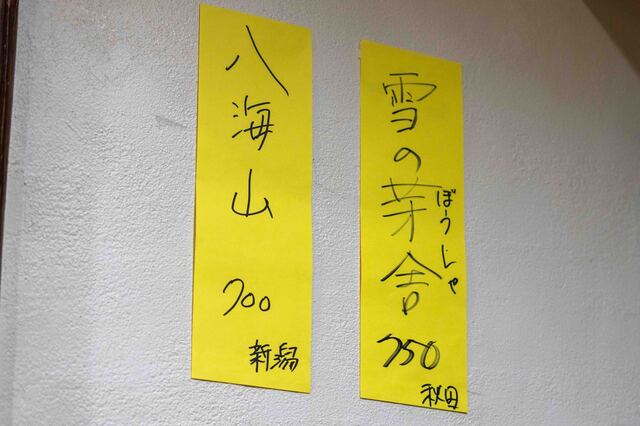 雪の茅舎
ぼうじゃ
750
秋田
八海山
700
新潟